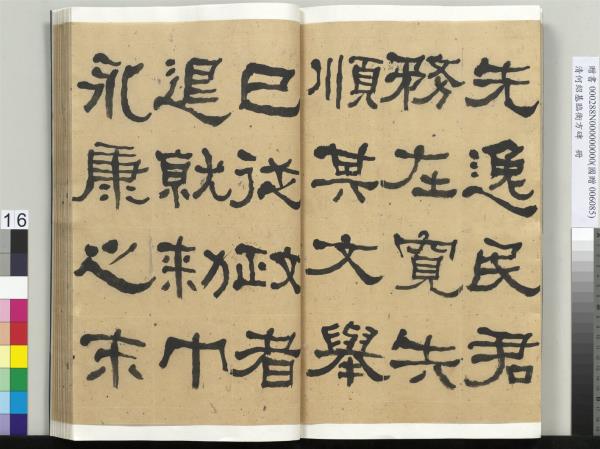 先逸民君
務在寬失
順其文舉
已從政者
退就勑巾
永康之末
贈書 000288N000000000(國贈 006085)
清何紹基臨衡方碑 冊
16